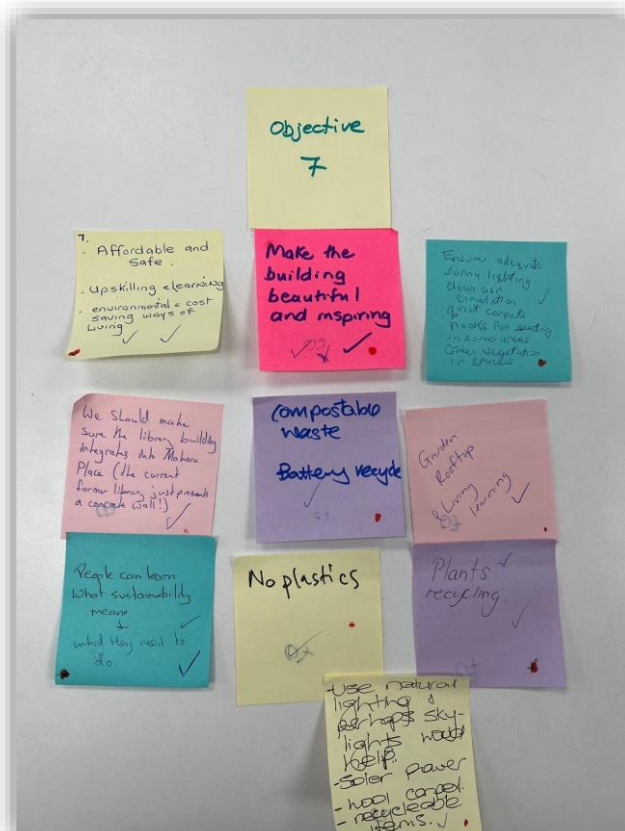 Objective
7
7.
. Affordable and
Safe.
. Upskilling elearning
. environmental & cost
saving ways of
living
Make the
building
beautiful
and inspiring
Ensure adequate
sunny lighting
clean air
circulation
quiet carpets
nooks for seating
in some areas
Green vegetation
in spaces
We should make
sure the library building
integrates into Mahara
Place (the current
former library just presents
a concrete wall!)
Compostable
waste
Battery recycle
Garden
Rooftop
& Living
learning
People can learn
what sustainability
means
+
what they need to
do.
No plastics
Plants
recycling
-use natural
lighting &
perhaps sky-
lights would
help.
-Soler power
- wool carpet.
- recycleable
items.